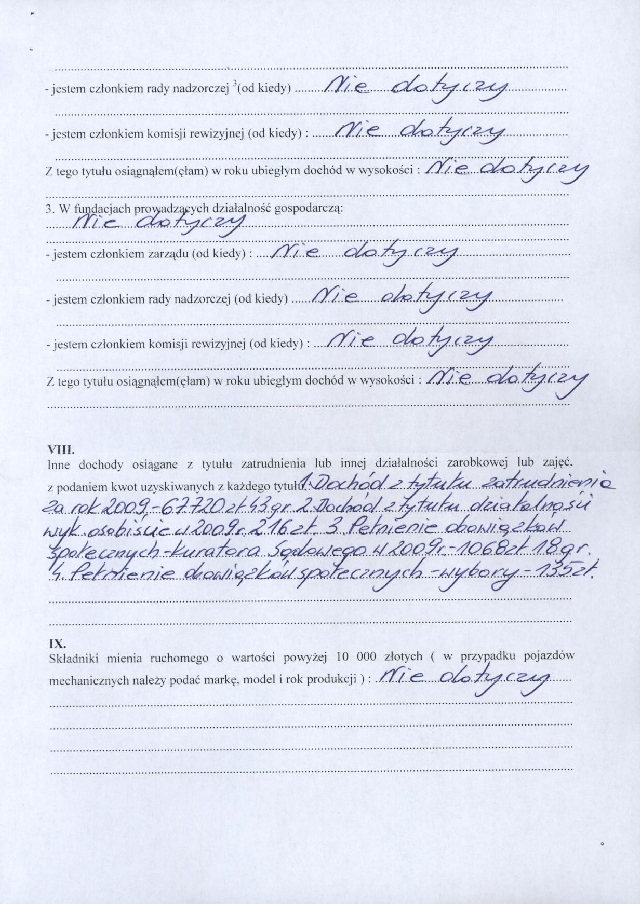 - jestem członkiem rady nadzorczej ³(od kiedy) ..... Nie dotyczy
- jestem członkiem komisji rewizyjnej (od kiedy) : ..... Nie dotyczy
Z tego tytułu osiągnąłem(ęłam) w roku ubiegłym dochód w wysokości : Nie dotyczy
3. W fundacjach prowadzących działalność gospodarczą:
Nie dotyczy
- jestem członkiem zarządu (od kiedy) : ..... Nie dotyczy
- jestem członkiem rady nadzorczej (od kiedy) ..... Nie dotyczy
- jestem członkiem komisji rewizyjnej (od kiedy) : ..... Nie dotyczy
Z tego tytułu osiągnąłem(ęłam) w roku ubiegłym dochód w wysokości : Nie dotyczy
VIII.
Inne dochody osiągane z tytułu zatrudnienia lub innej działalności zarobkowej lub zajęć,
z podaniem kwot uzyskiwanych z każdego tytułu: 1. Dochód z tytułu zatrudnienia
za rok 2009 - 67.720 zł 43 gr. 2. Dochód z tytułu działalności
wyk. osobiście w 2009 r. 216 zł. 3. Pełnienie obowiązków
społecznych - kuratora Sądowego w 2009 r. - 1068 zł 18 gr.
4. Pełnienie obowiązków społecznych - wybory - 135 zł.
IX.
Składniki mienia ruchomego o wartości powyżej 10 000 złotych ( w przypadku pojazdów
mechanicznych należy podać markę, model i rok produkcji ) : Nie dotyczy